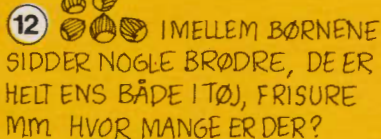 12 IMELLEM BØRNENE
SIDDER NOGLE BRØDRE, DE ER
HELT ENS BÅDE I TØJ, FRISURE
MM HVOR MANGE ER DER?